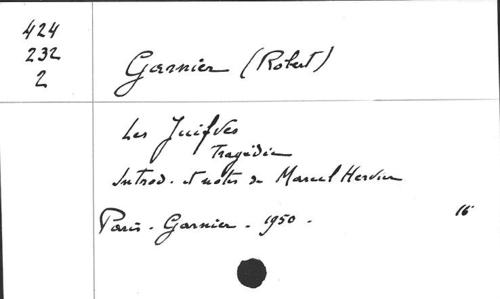 424
232
2
Garnier (Robert)
Les Juifves
Tragédie
Introd. et notes de Marcel Hervier
Paris - Garnier - 1950 -
16